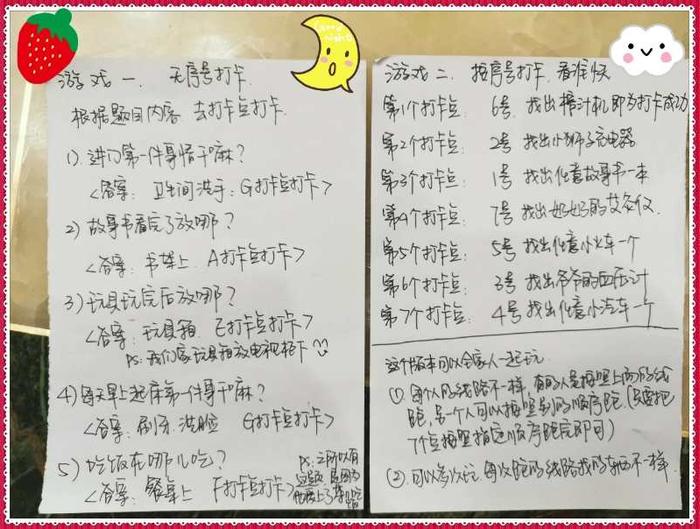 good
night
游戏一、无序号打卡
根据题目内容去打卡点打卡.
1). 进门第一件事情干嘛?
<答案: 卫生间洗手: G打卡点打卡>
2) 故事书看完了放哪?
<答案: 书架上 A打卡点打卡>
3) 玩具玩完后放哪?
<答案: 玩具箱 E打卡点打卡>
PS: 我们家玩具箱放电视柜下
4) 每天早上起床第一件事干嘛?
<答案: 刷牙.洗脸 G打卡点打卡>
5) 吃饭在哪儿吃?
<答案: 餐桌上 F打卡点打卡>
PS: 之所以有
游戏二、按序号打卡.看谁快
第1个打卡点: 6号 找出榨汁机即为打卡成功
第2个打卡点: 2号 找出小狮子充电器
第3个打卡点: 1号 找出任意故事书一本
第4个打卡点: 7号 找出奶奶的艾灸仪.
第5个打卡点: 5号 找出任意小火车一个
第6个打卡点: 3号 找出爷爷的血压计
第7个打卡点: 4号 找出任意小汽车一个
这个版本可以全家人一起玩
① 每个人的线路不一样 有的人是按照上面的线
路, 另一个人可以按照别的顺序跑. (只要把
7个点按照指定顺序跑完即可)
②. 可以多次玩 每次跑的线路找的东西不一样.